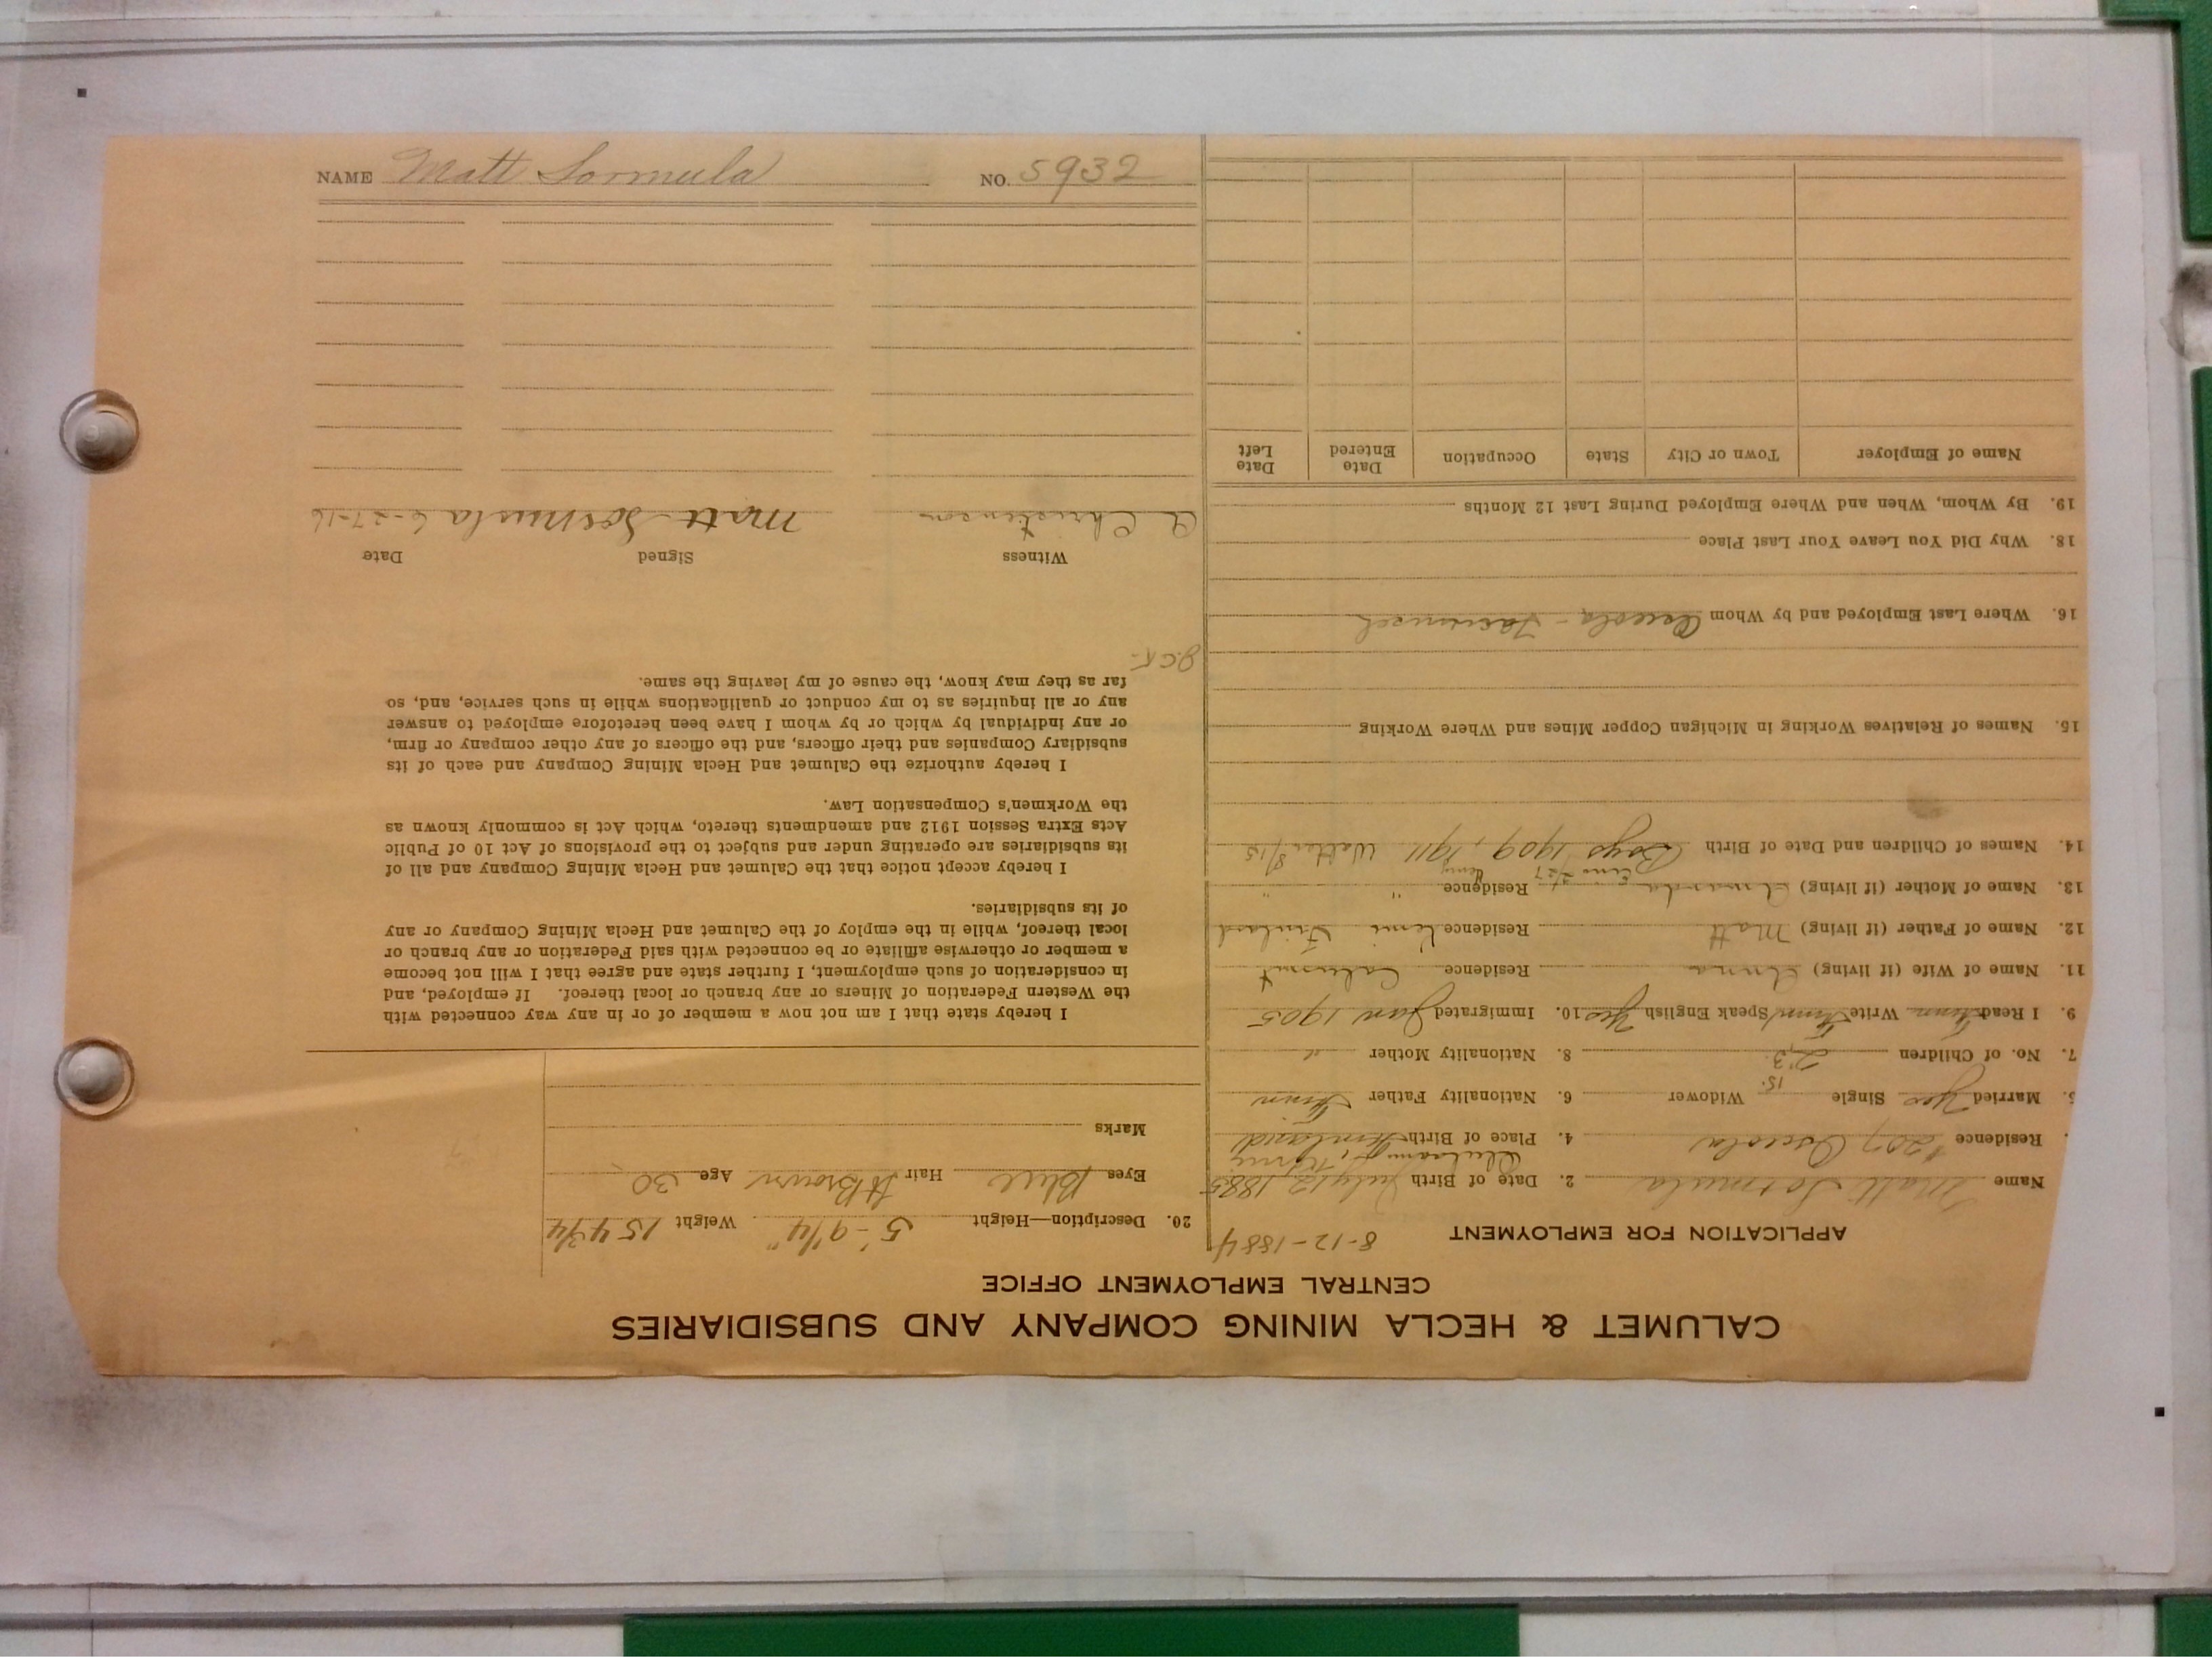 CALUMET & HECLA MINING COMPANY AND SUBSIDIARIES
CENTRAL EMPLOYMENT OFFICE
APPLICATION FOR EMPLOYMENT 8-12-1884
Name Matt Sormula 2. Date of Birth July 12, 1885
Residence #207 Osceola 4. Place of Birth Finland
Married Yes Single Widower 6. Nationality Father Finn
15
7. No. of Children 2 3 8. Nationality Mother "
9. I Read Finn Write Finn Speak English Yes 10. Immigrated Jan 1905
11. Name of Wife (if living) Anna Residence Calumet
12. Name of Father (if living) Matt Residence Kemi Finland
13. Name of Mother (if living) Amanda Residence " "
14. Names of Children and Date of Birth Boys 1909, 1911 Walter 8/15
15. Names of Relatives Working in Michigan Copper Mines and Where Working
16. Where Last Employed and by Whom Osceola -
18. Why Did You Leave Your Last Place
19. By Whom, When and Where Employed During Last 12 Months
Name of Employer Town or City State Occupation Date Entered Date Left
20. Description—Height 5'-9 1/4" Weight 154 3/4
Eyes Blue Hair Lt Brown Age 30
Marks
I hereby state that I am not now a member of or in any way connected with
the Western Federation of Miners or any branch or local thereof. If employed, and
in consideration of such employment, I further state and agree that I will not become
a member or otherwise affiliate or be connected with said Federation or any branch or
local thereof, while in the employ of the Calumet and Hecla Mining Company or any
of its subsidiaries.
I hereby accept notice that the Calumet and Hecla Mining Company and all of
its subsidiaries are operating under and subject to the provisions of Act 10 of Public
Acts Extra Session 1912 and amendments thereto, which Act is commonly known as
the Workmen's Compensation Law.
I hereby authorize the Calumet and Hecla Mining Company and each of its
subsidiary Companies and their officers, and the officers of any other company or firm,
or any individual by which or by whom I have been heretofore employed to answer
any or all inquiries as to my conduct or qualifications while in such service, and, so
far as they may know, the cause of my leaving the same.
Witness Signed Date
A Christenson Matt Sormula 6-27-16
NAME Matt Sormula NO. 5932